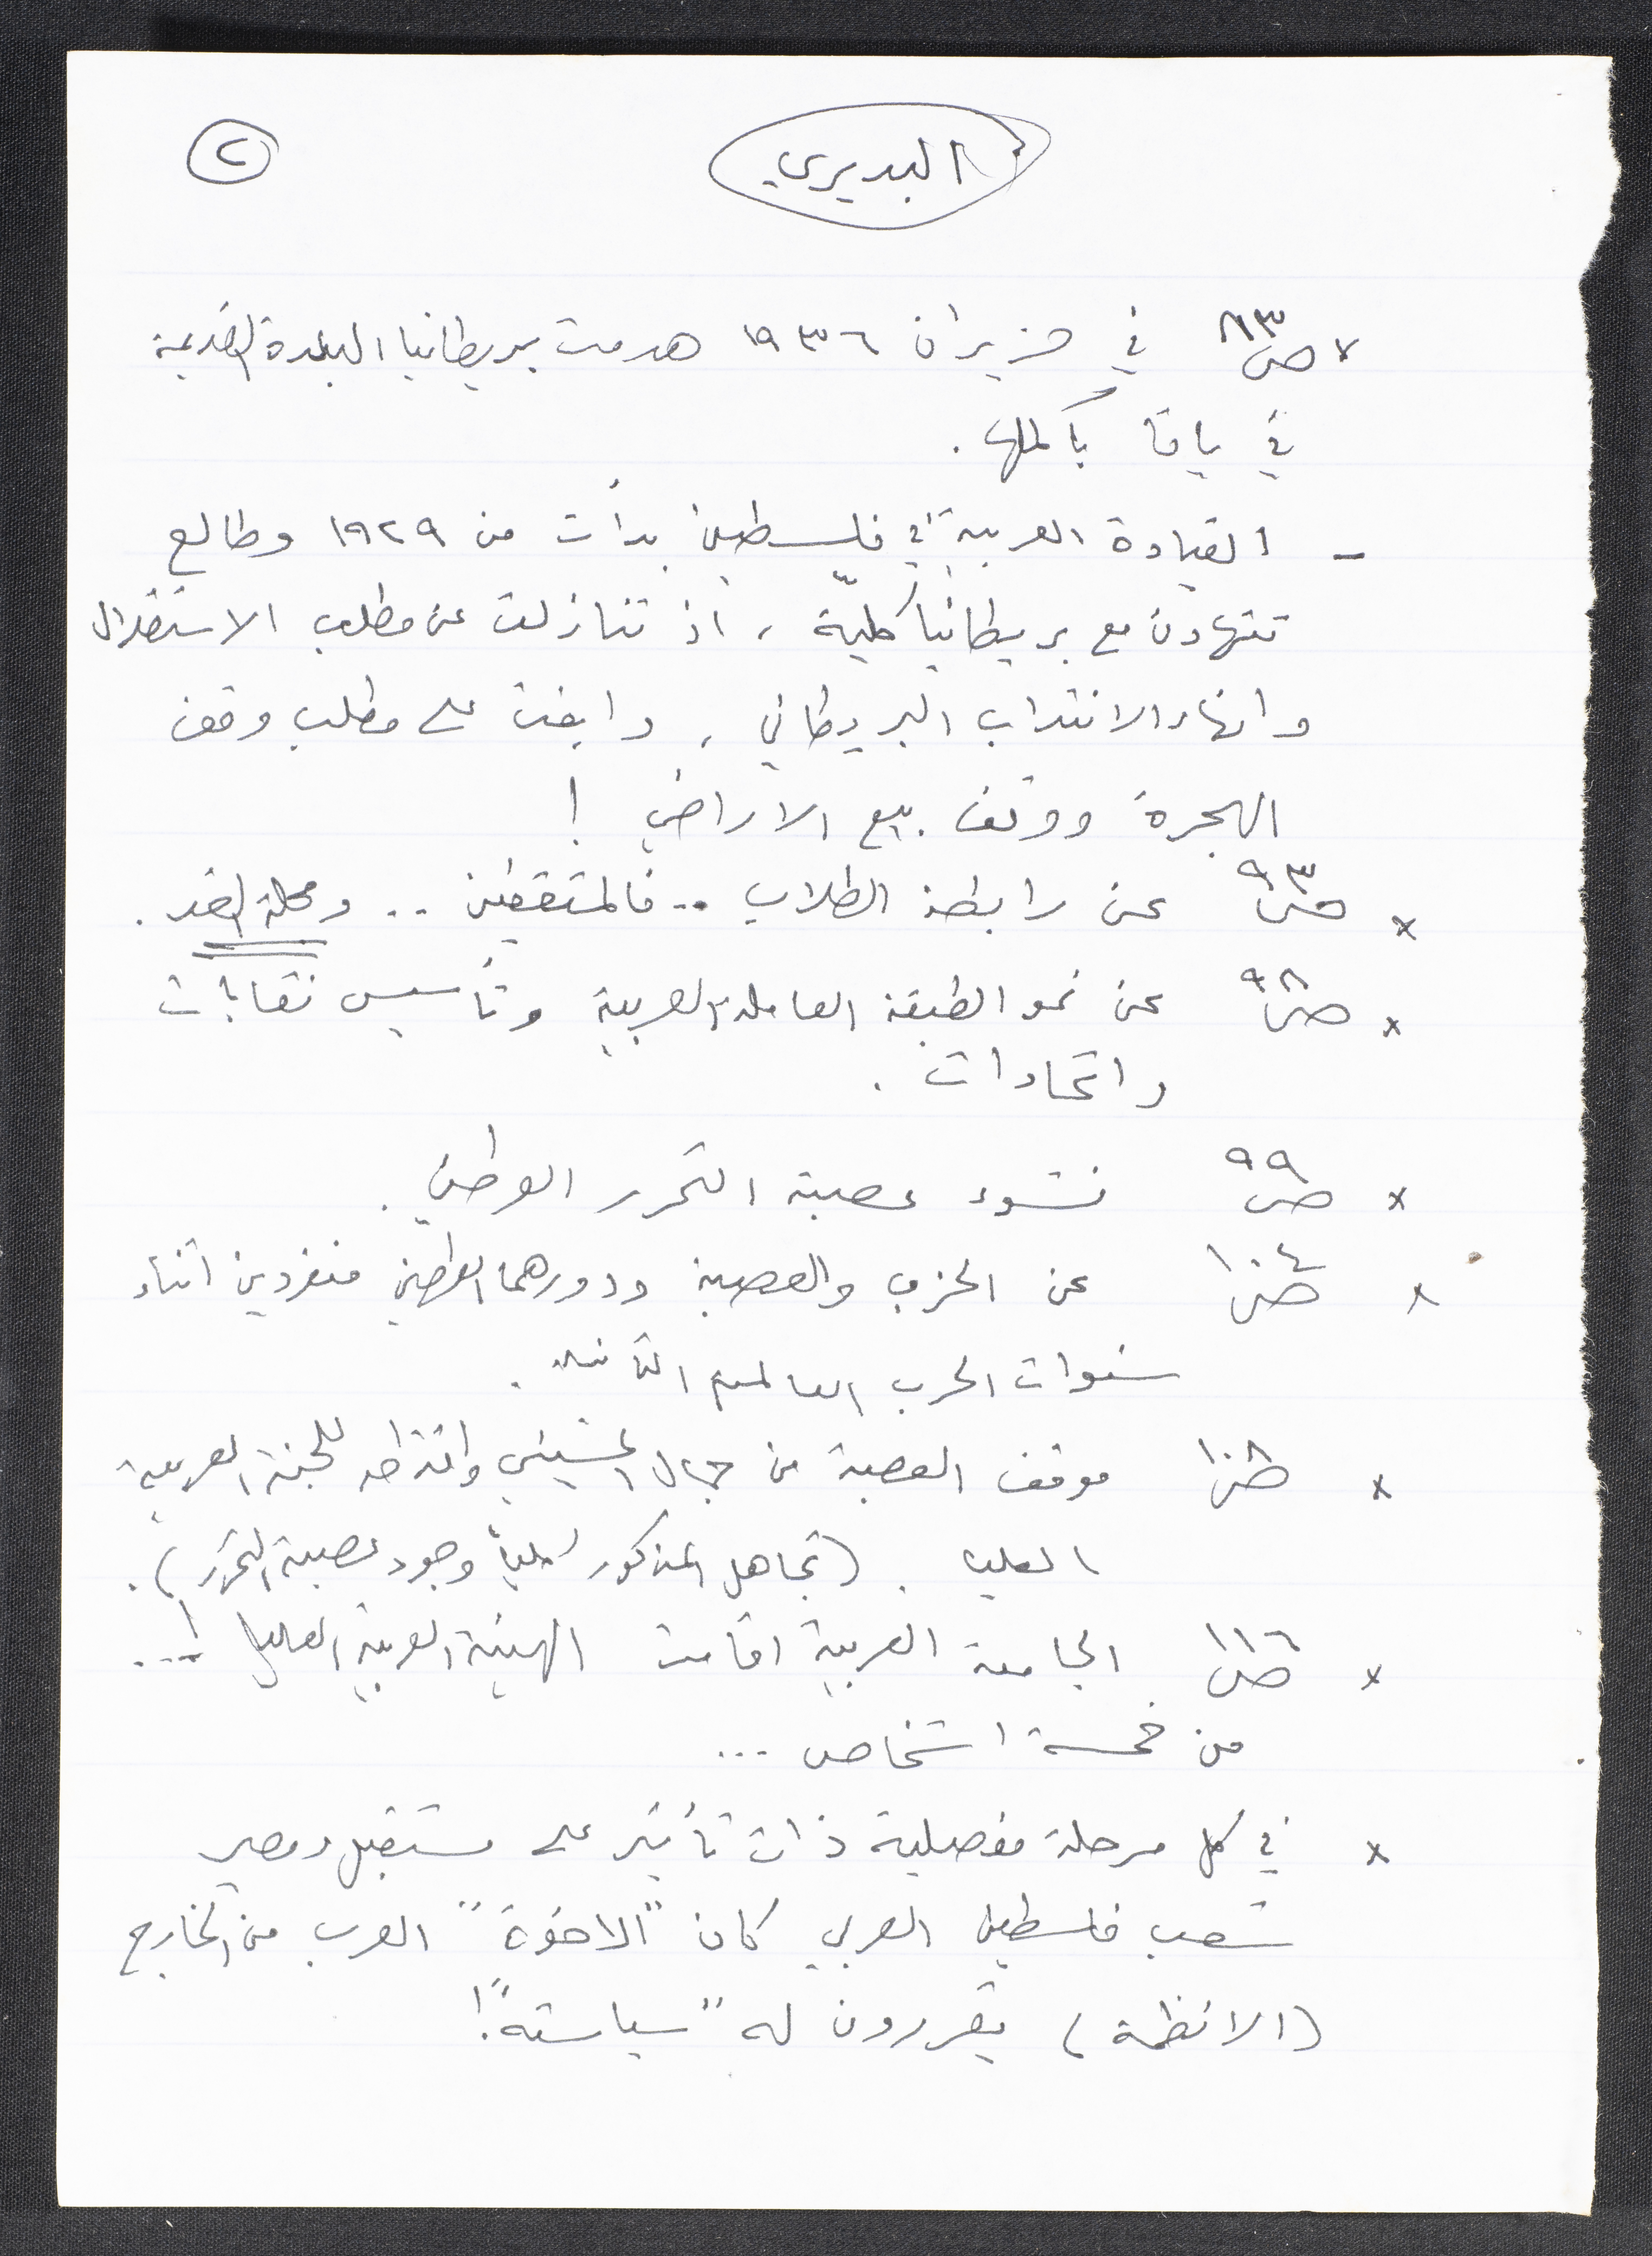 البديري
٢
× ص٨٣ في حزيران ١٩٣٦ هدمت بريطانيا البلدة القديمة
في يافا بأكملها .
- القيادة العربية في فلسطين بدأت من ١٩٢٩ وطالع
تتهاون مع بريطانيا كليّة ، اذ تنازلت عن مطلب الاستقلال
وانهاء الانتداب البريطاني ، وابقت على مطلب وقف
الهجرة ووقف بيع الاراضي !
× ص٩٣ عن رابطة الطلاب .. فالمثقفين .. ومجلة الغد .
× ص٩٨ عن نمو الطبقة العاملة العربية وتأسيس نقابات
واتحادات .
× ص٩٩ نشوء عصبة التحرر الوطني .
× ص١٠٤ عن الحزب والعصبة ودورهما الوطني منفردين اثناء
سنوات الحرب العالمية الثانية .
× ص١٠٨ موقف العصبة من جمال الحسيني واقتراحه للجنة العربية
العليا . (تجاهل المذكور كلياً وجود عصبة التحرر) .
× ص١١٦ الجامعة العربية اقامت الهيئة العربية العليا !...
من خمسة اشخاص ...
× في كل مرحلة مفصلية ذات تأثير على مستقبل ومصير
شعب فلسطين العربي كان "الاخوة" العرب من الخارج
(الانظمة) يقررون له "سياسته"!